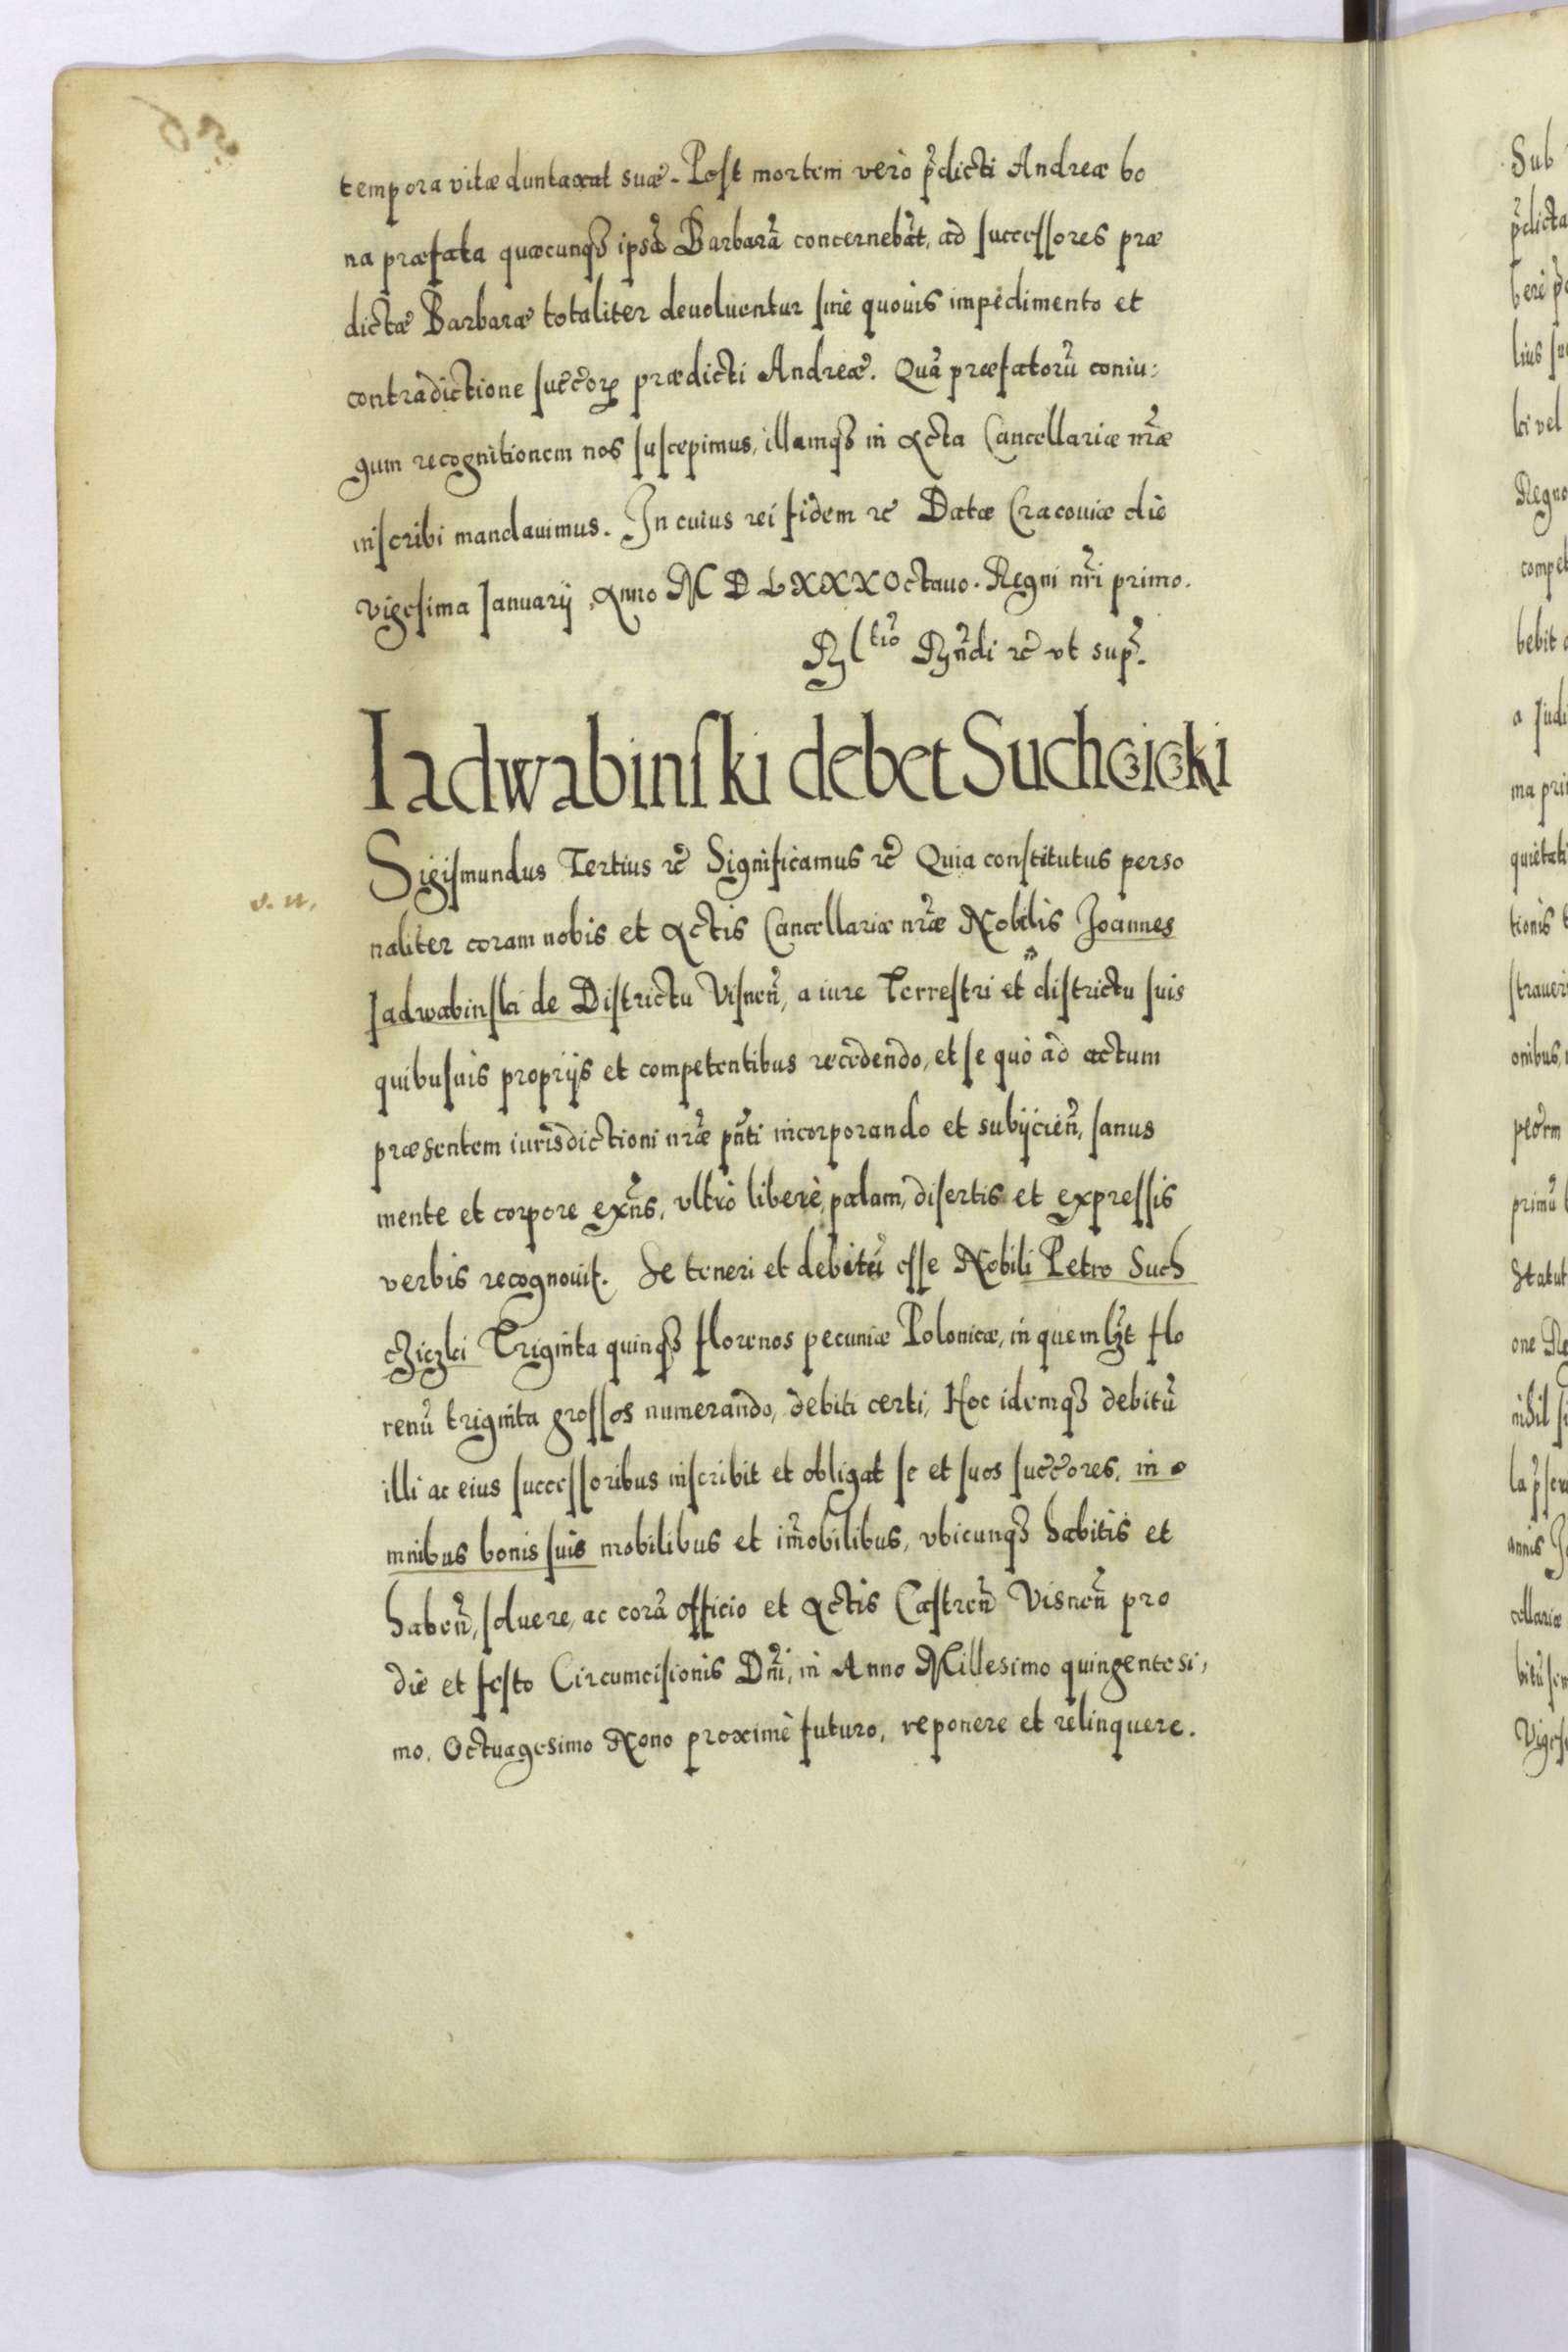 tempora vitæ duntaxat suæ. Post mortem verò p̃dicti Andreæ bo
na præfata quæcunqȝ ipsã Barbarã concernebãt, ad successores præ
dictæ Barbaræ totaliter deuoluentur sine quouis impedimento et
contradictione succ̃orꝝ prædicti Andreæ. Quã præfatorũ coniu:
gum recognitionem nos suscepimus, illamqȝ in Acta Cancellariæ nr̃æ
inscribi mandauimus. In cuius rei fidem ꝛc̃ Datæ Cracouiæ die
vigesima Ianuarij Anno M D LXXX Octauo. Regni nr̃i primo.
Rltio Rn̄di ꝛc̃ vt sup̃.
Iadwabinſki debet Suchcicki
Sigismundus Tertius ꝛc̃ Significamus ꝛc̃ Quia constitutus perso
v. n.
naliter coram nobis et Actis Cancellariæ nr̃æ Nobilis Joannes
Iadwabinski de Districtu Visneñ, a iure Terrestri et districtu suis
quibusuis proprijs et competentibus recedendo, et se quò ad actum
præsentem iurisdictioni nr̃æ pñti incorporando et subijcieñ, sanus
mente et corpore exñs, vltrò liberè, palam, disertis et expressis
verbis recognouit. Se teneri et debitũ esse Nobili Petro Such
cziczki Triginta quinqȝ florenos pecuniæ Polonicæ, in quemlȝt flo
renũ triginta grossos numerando, debiti certi, Hoc idemqȝ debitũ
illi ac eius successoribus inscribit et obligat se et suos succ̃ores, in o
mnibus bonis suis mobilibus et im̃obilibus, vbicunqȝ habitis et
habeñ, soluere, ac corã officio et Actis Castreñ Visneñ pro
die et festo Circumcisionis Dñi, in Anno Millesimo quingentesi,
mo, Octuagesimo Nono proximè futuro, reponere et relinquere.
Sub
p̃dicta
berè
lius
lci vel
Regno
compet
bebit
a Judi
ma pri
quietati
tionis
straueri
onibus,
primũ
Statut
one Re
nihil
annis
cellariæ
Vigesi